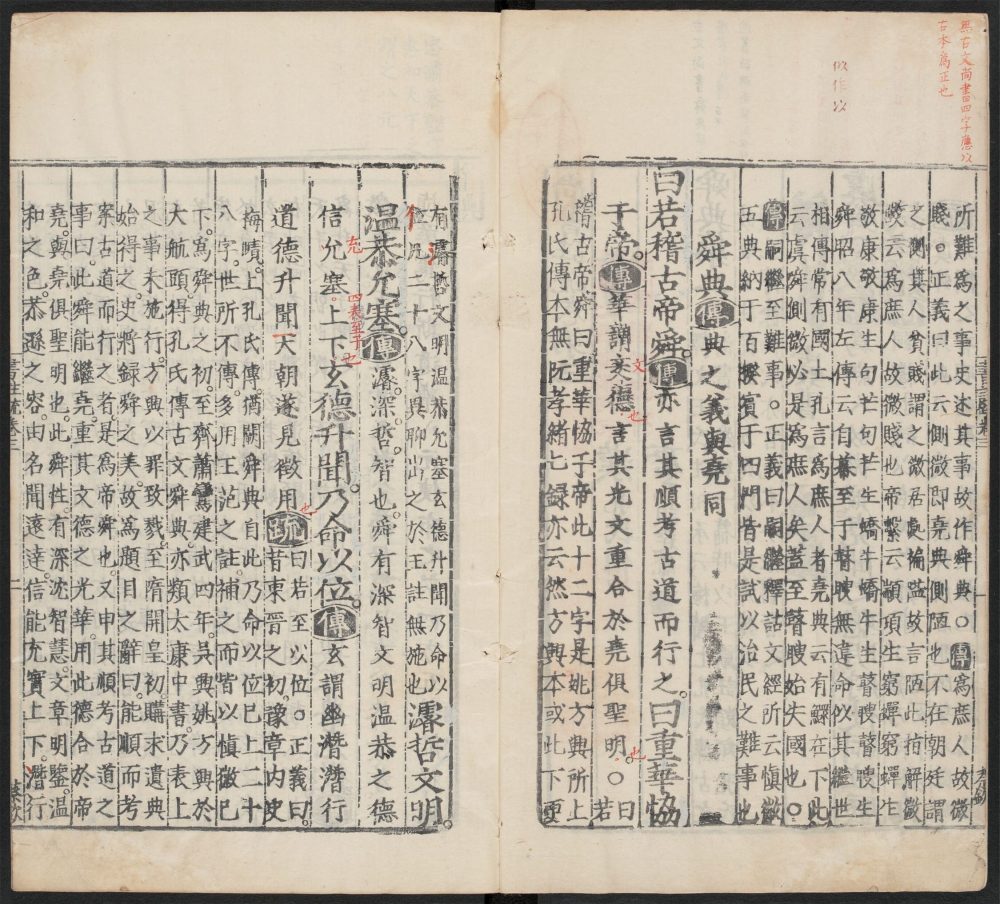 無古文尚書四字應以
古本爲正也
似作以
所難爲之事史述其事故作舜典○傳爲庶人故微
賤○正義曰此云側微即堯典側陋也不在朝廷謂
之側其人貧賤謂之微居處褊隘故言陋此指解微
故云爲庶人故微賤也帝繫云顓頊生窮蟬窮蟬生
敬康敬康生句芒句芒生蟜牛蟜牛生瞽瞍瞽瞍生
舜昭八年左傳云自幕至于瞽瞍無違命似其繼世
相傳常有國土孔言爲庶人者堯典云有鰥在下此
云虞舜側微必是爲庶人矣蓋至瞽瞍始失國也○
傳嗣繼至難事○正義曰嗣繼釋詁文經所云慎徽
五典納于百揆賓于四門皆是試以治民之難事也
舜典傳典之義與堯同
曰若稽古帝舜傳亦言其順考古道而行之曰重華協
于帝傳華謂文德言其光文重合於堯俱聖明○曰若
文
也
也
稽古帝舜曰重華協于帝此十二字是姚方興所上
孔氏傳本無阮孝緒七錄亦云然方興本或此下更
有濬哲文明溫恭允塞玄德升聞乃命以
位凡二十八字異聊出之於王註無施也濬哲文明
溫恭允塞傳濬深哲智也舜有深智文明溫恭之德
信允塞上下玄德升聞乃命以位傳玄謂幽潛潛行
充
四表至于也
道德升聞天朝遂見徵用疏曰若至以位○正義曰
也
昔東晉之初豫章內史
梅賾上孔氏傳猶闕舜典自此乃命以位已上二十
八字世所不傳多用王范之註補之而皆以慎徽已
下爲舜典之初至齊蕭鸞建武四年吳興姚方興於
大航頭得孔氏傳古文舜典亦類太康中書乃表上
之事未施行方興以罪致戮至隋開皇初購求遺典
始得之史將錄舜之美故爲題目之辭曰能順而考
案古道而行之者是爲帝舜也又申其順考古道之
事曰此舜能繼堯重其文德之光華用此德合於帝
堯與堯俱聖明也此舜性有深沈智慧文章明鑒溫
和之色恭遜之容由名聞遠達信能充實上下潛行